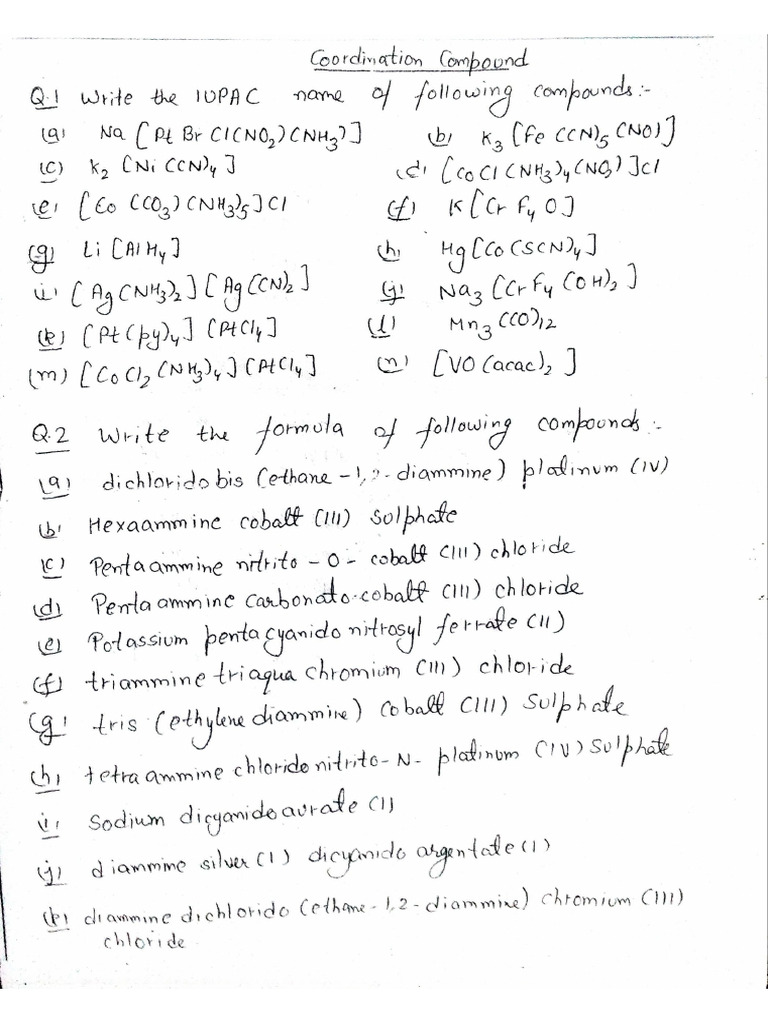 Coordination Compound
Q.1 Write the IUPAC name of following compounds:-
(a) Na [Pt Br Cl(NO2)(NH3)] (b) K3 [Fe (CN)5 (NO)]
(c) K2 [Ni (CN)4] (d) [CoCl(NH3)4(NO2)]Cl
(e) [Co (CO3)(NH3)5]Cl (f) K[Cr F4 O]
(g) Li [AlH4] (h) Hg[Co(SCN)4]
(i) [Ag(NH3)2][Ag(CN)2] (j) Na3 [CrF4 (OH)2]
(k) [Pt(py)4] [PtCl4] (l) Mn3 (CO)12
(m) [CoCl2 (NH3)4] [PtCl4] (n) [VO (acac)2]
Q.2 Write the formula of following compounds:-
(a) dichlorido bis (ethane-1,2-diammine) platinum (IV)
(b) Hexaammine cobalt (III) sulphate
(c) Pentaammine nitrito-O-cobalt (III) chloride
(d) Pentaammine carbonato-cobalt (III) chloride
(e) Potassium pentacyanido nitrosyl ferrate (II)
(f) triammine triaqua chromium (III) chloride
(g) tris (ethylene diammine) cobalt (III) Sulphate
(h) tetraammine chloridonitrito-N-platinum (IV) Sulphate
(i) Sodium dicyanido aurate (I)
(j) diammine silver (I) dicyanido argentate (I)
(k) diammine dichlorido (ethane-1,2-diammine) chromium (III)
chloride